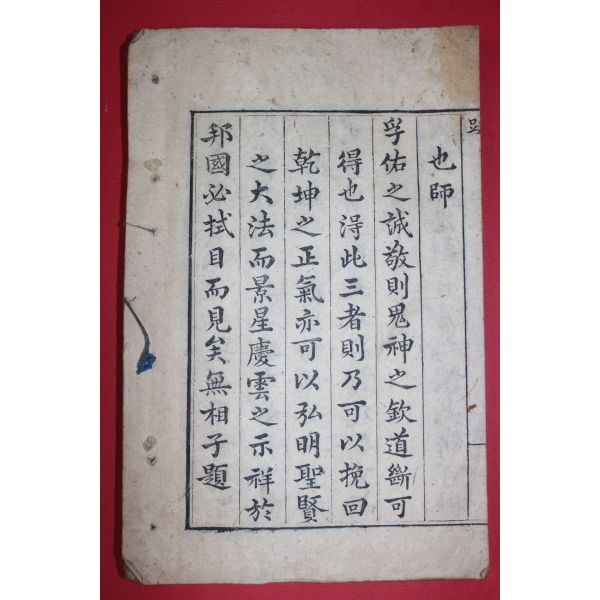 跋
也師
孚佑之誠敬則鬼神之欽道斷可
得也淂此三者則乃可以挽回
乾坤之正氣亦可以弘明聖賢
之大法而景星慶雲之示祥於
邦國必拭目而見矣無相子題